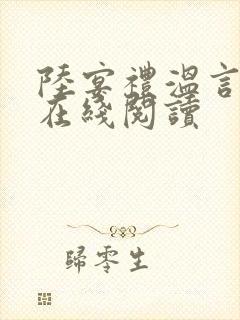 陸宴禮溫言
在綫閱讀
歸零生